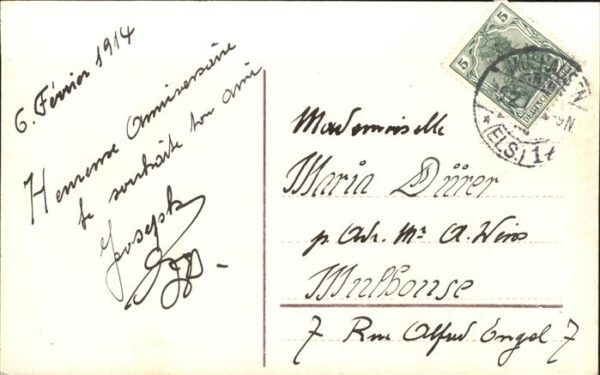 6. Février 1914
Heureuse Anniversaire
te souhaite ton ami
Joseph
Mademoiselle
Maria Dürer
p. Adr. Mr A. Wiss
Mulhouse
7 Rue Alfred Engel 7
5
5
MÜLHAUSEN
(ELS.) 1